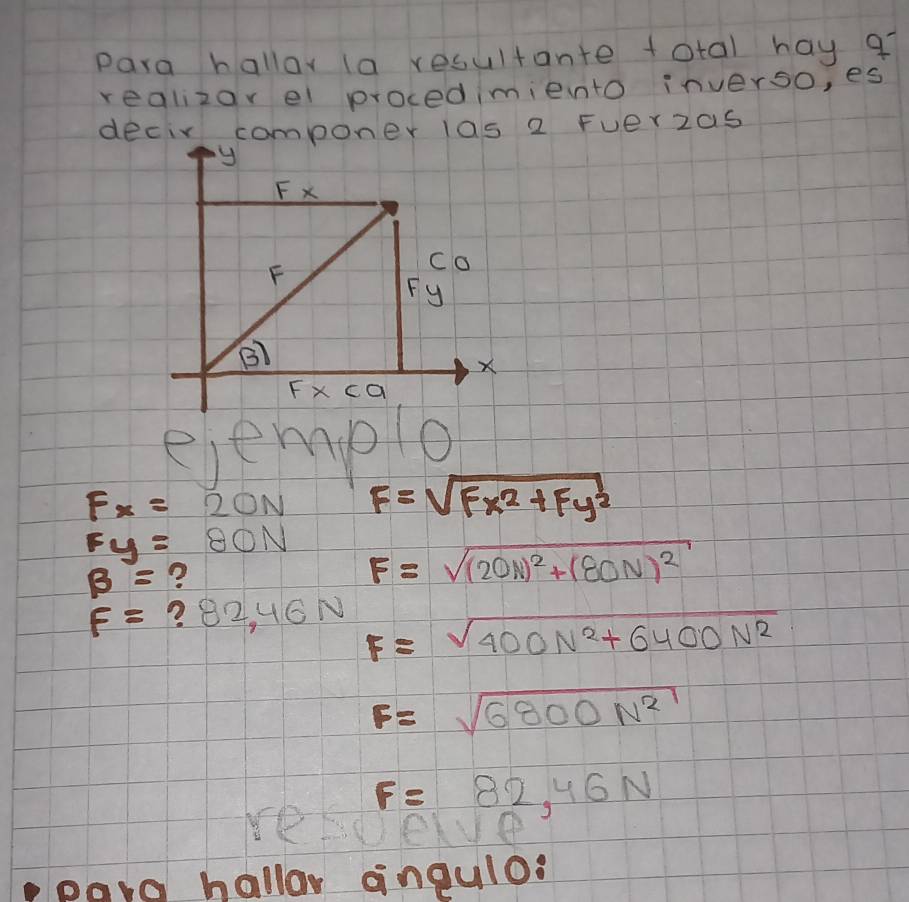 Para hallar la resultante total hay q-
realizar el procedimiento inverso, es
decir componer las 2 Fuerzas
y
Fx
CO
F
Fy
B)
x
Fx ca
ejemplo
Fx = 20N
F = √Fx² + Fy²
Fy = 80N
B = ?
F = √(20N)² + (80N)²
F = ? 82,46N
F = √400N² + 6400N²
F = √6800N²
F = 82,46N
resuelve
• para hallar ángulo: